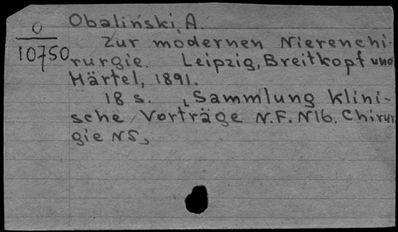 O
10750
Obaliński, A.
Zur modernen Nierenchi-
rurgie. Leipzig, Breitkopf und
Härtel, 1891.
18 s. „Sammlung klini-
sche Vorträge N.F. N16. Chirur
gie N5„